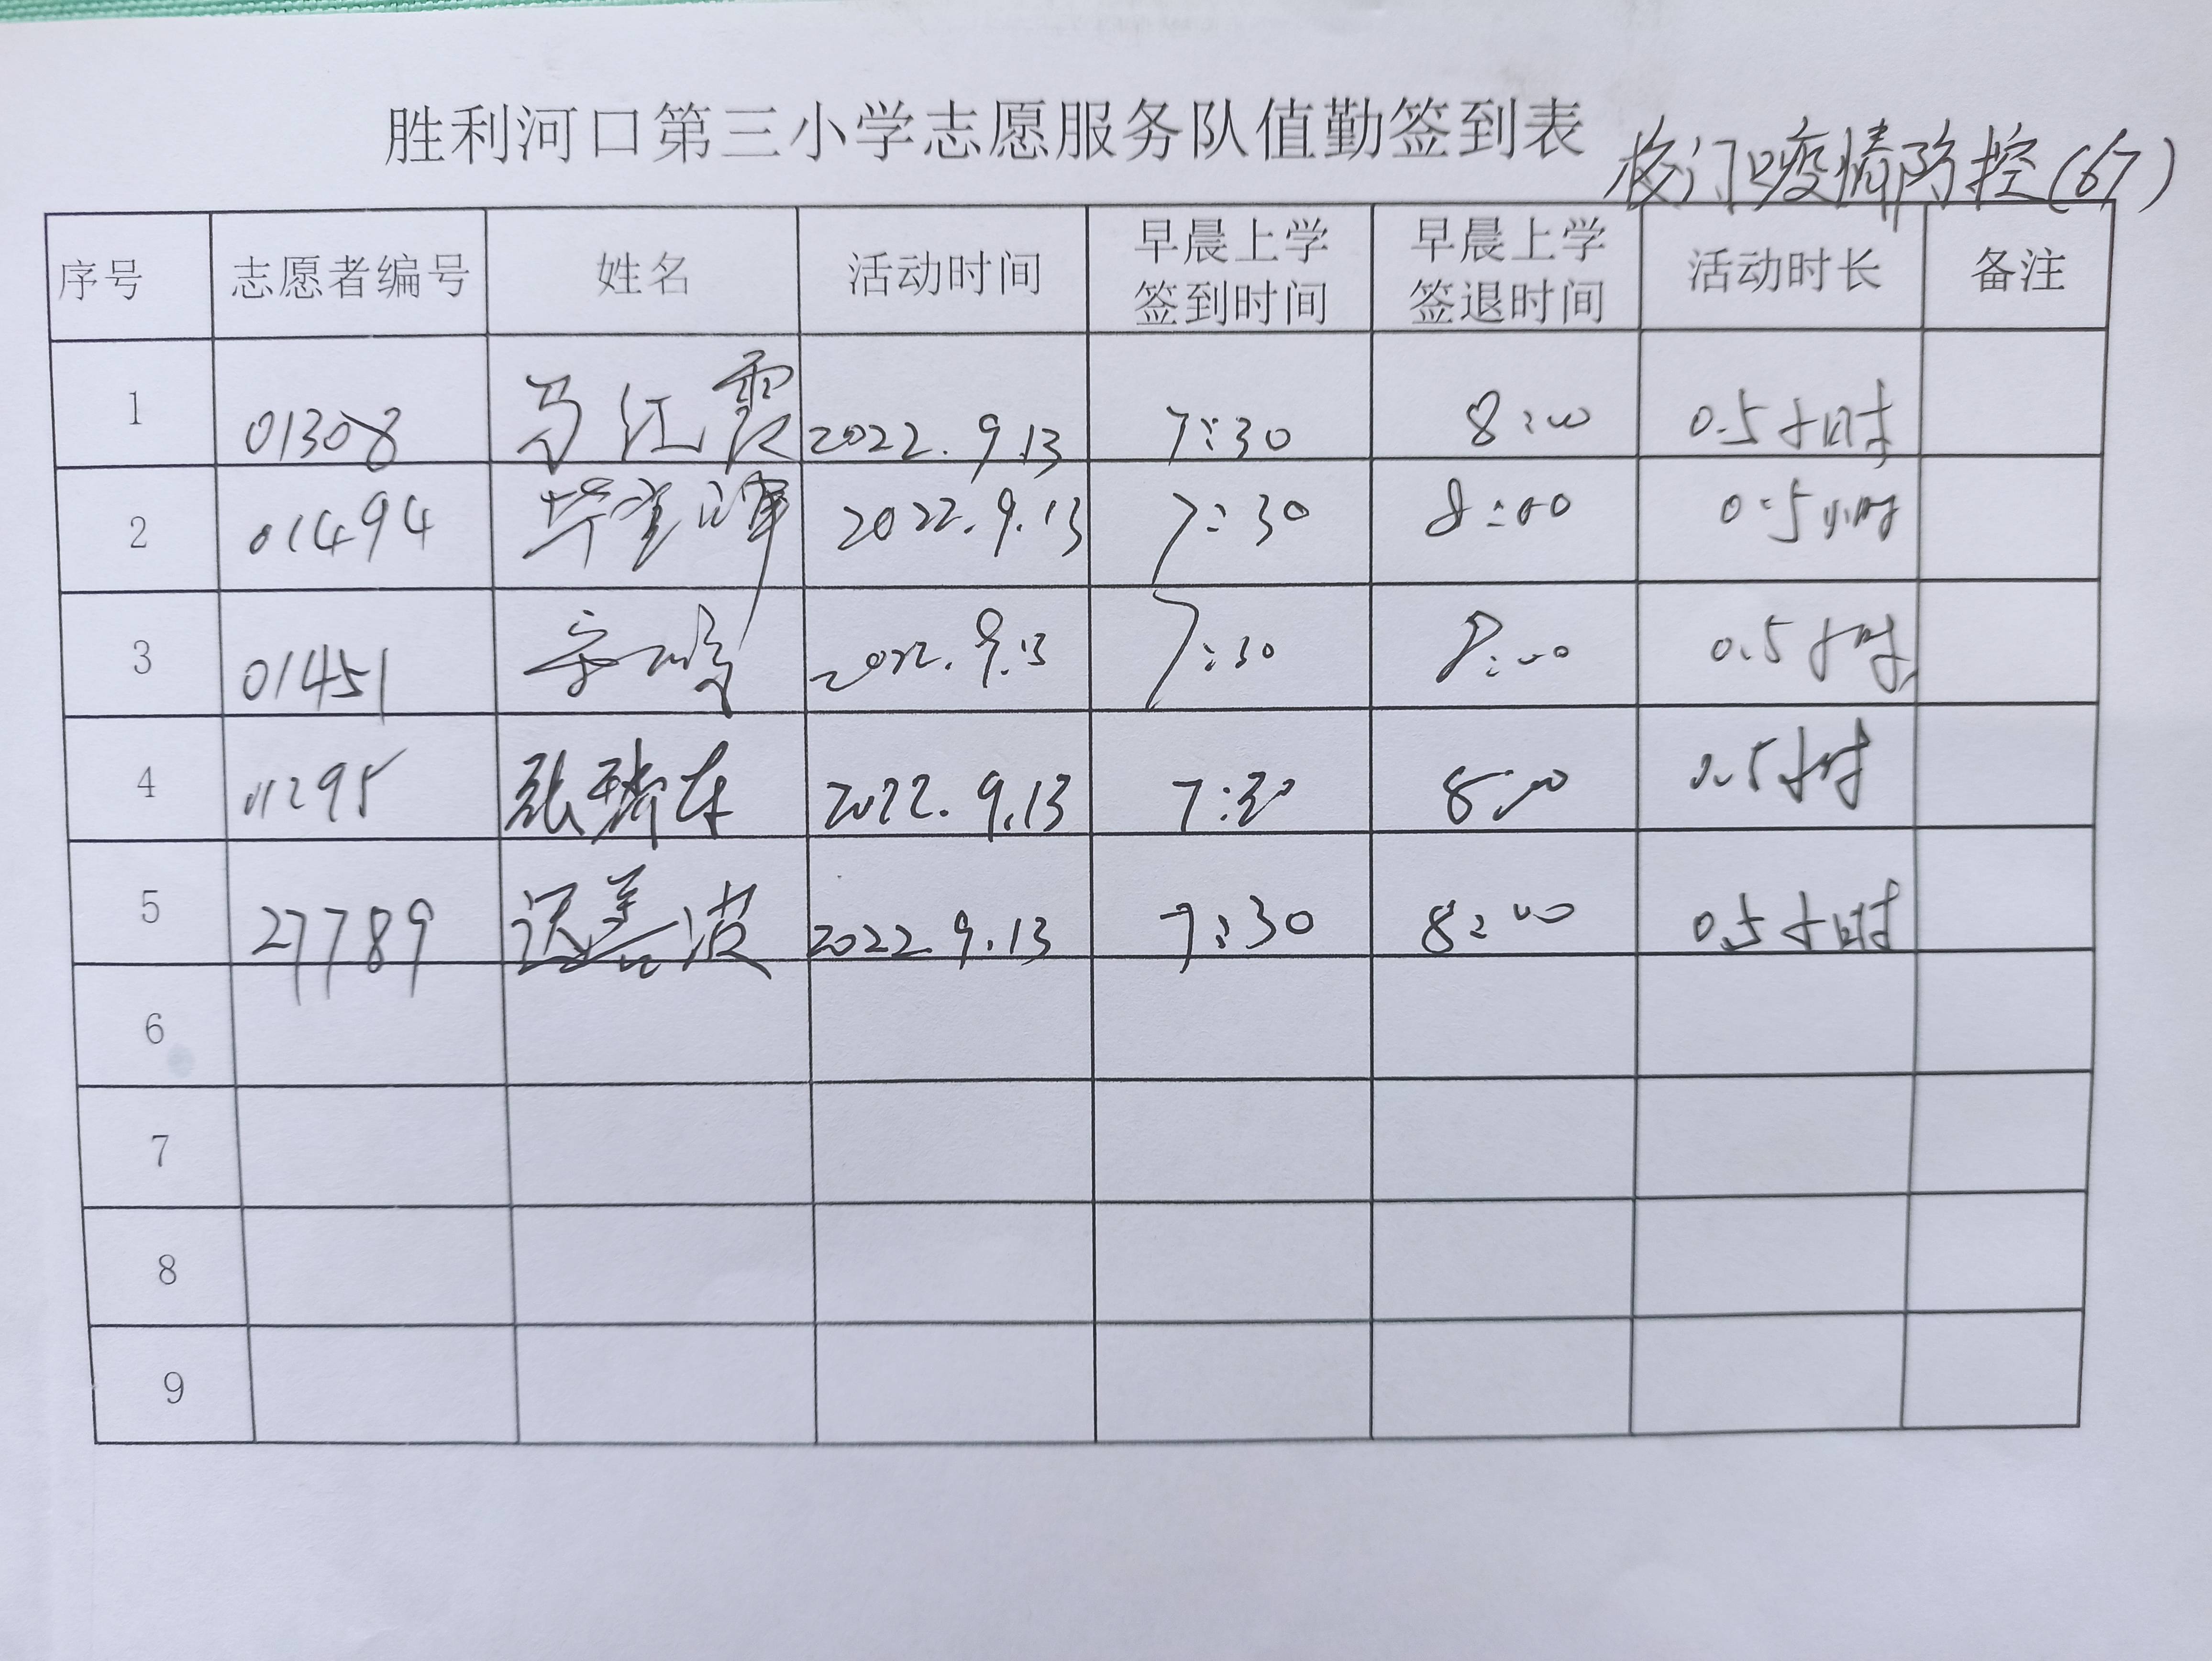 胜利河口第三小学志愿服务队值勤签到表 校门口疫情防控(67)
序号 志愿者编号 姓名 活动时间 早晨上学签到时间 早晨上学签退时间 活动时长 备注
1 01308 马江霞 2022.9.13 7:30 8:00 0.5小时
2 01494 2022.9.13 7:30 8:00 0.5小时
3 01451 2022.9.13 7:30 8:00 0.5小时
4 01295 张瑞东 2022.9.13 7:30 8:00 0.5小时
5 27789 波 2022.9.13 7:30 8:00 0.5小时
6
7
8
9